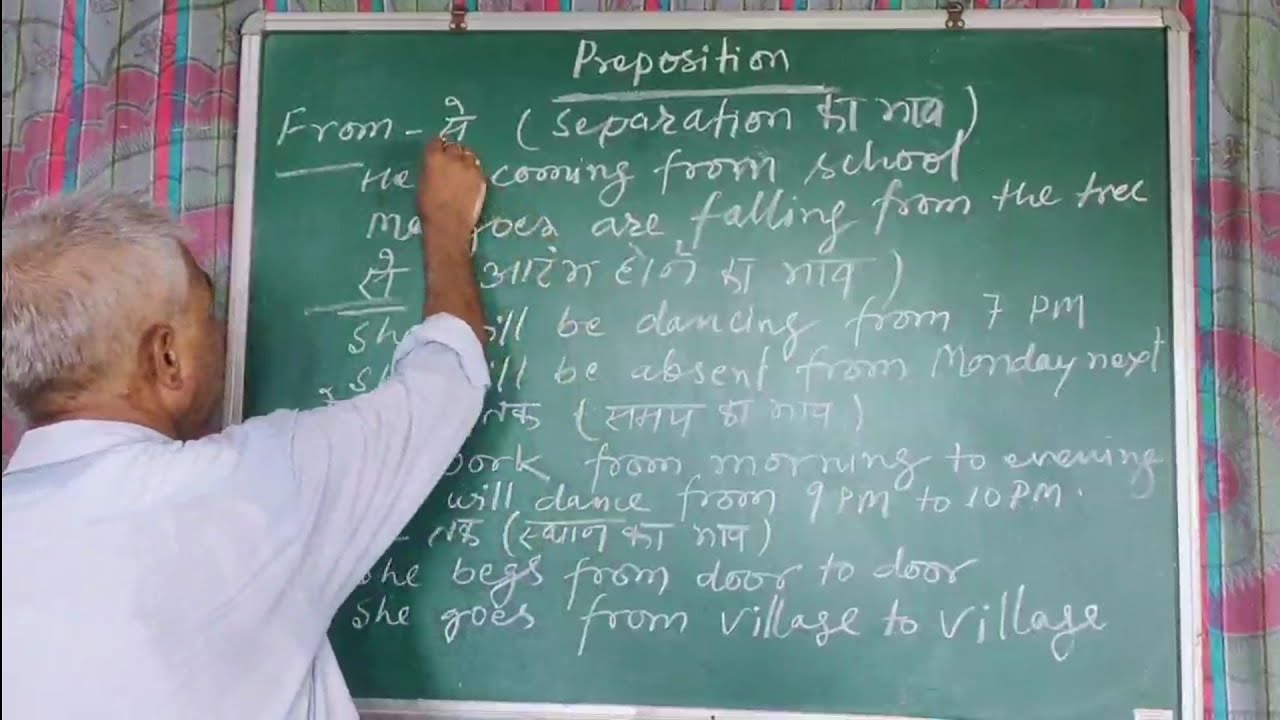 Preposition
From - से (separation का भाव)
He coming from school
are falling from the tree
से आरंभ होने का भाव)
will be dancing from 7 PM
will be absent from Monday next
तक (समय का भाव)
from morning to evening
will dance from 9 PM to 10 PM.
- तक (स्थान का भाव)
She begs from door to door
She goes from village to village